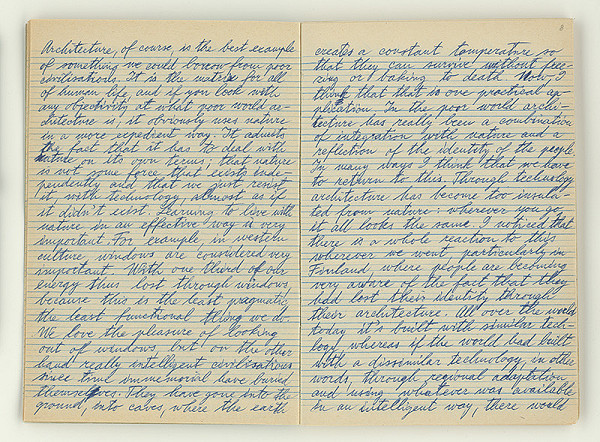 Architecture, of course, is the best example
of something we could borrow from poor
civilisations. It is the matrix for all
of human life, and if you look with
any objectivity at what poor world ar-
chitecture is, it obviously uses nature
in a more expedient way. It admits
the fact that it has to deal with
nature on its own terms; that nature
is not some force that exists inde-
pendently and that we just resist
it, with technology, almost as if
it didn't exist. Learning to live with
nature in an effective way is very
important. For example in western
culture windows are considered very
important. With one third of our
energy thus lost through windows,
because this is the least pragmatic,
the least functional thing we do.
We love the pleasure of looking
out of windows, but on the other
hand really intelligent civilisations
since time immemorial have buried
themselves. They have gone into the
ground, into caves, where the earth
creates a constant temperature so
that they can survive without free-
zing or baking to death. Now, I
think that that is one practical ap-
plication. In the poor world archi-
tecture has really been a combination
of integration with nature and a
reflection of the identity of the people.
In many ways I think that we have
to return to this. Through technology
architecture has become too insula-
ted from nature: wherever you go
it all looks the same. I noticed that
there is a whole reaction to this
wherever we went, particularly in
Finland, where people are becoming
very aware of the fact that they
had lost their identity through
their architecture. All over the world
today it's built with similar tech-
logy, whereas if the world had built
with a dissimilar technology, in other
words, through regional adaptation
and using whatever was available
in an intelligent way, there would